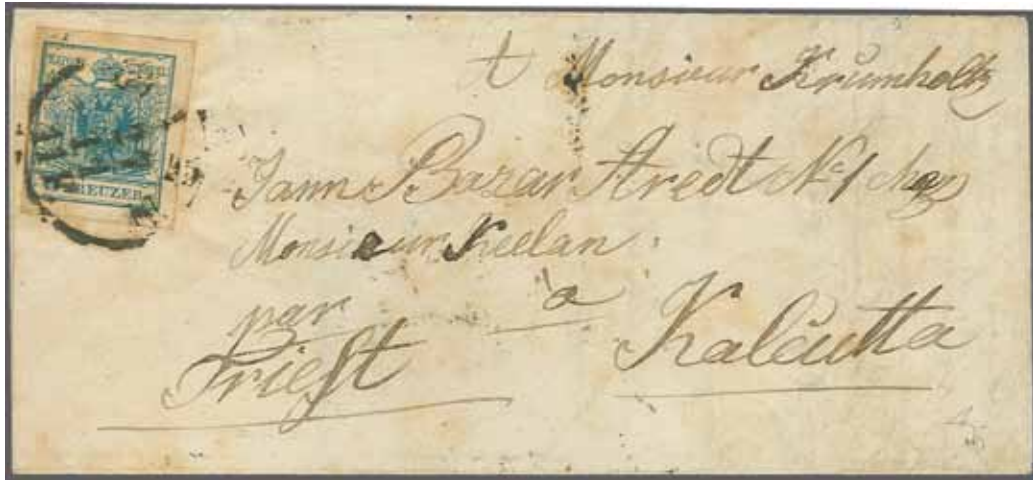 KREUZER
A Monsieur Krumholtz
Jann Bazar Stredt No 1 chez
Monsieur Keelan.
par a Kalcutta
Triest